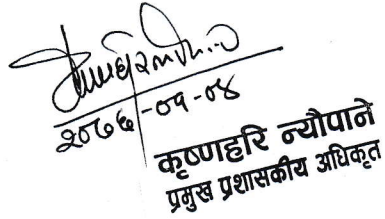 २०७६-०१-०४
कृष्णहरि न्यौपाने
प्रमुख प्रशासकीय अधिकृत